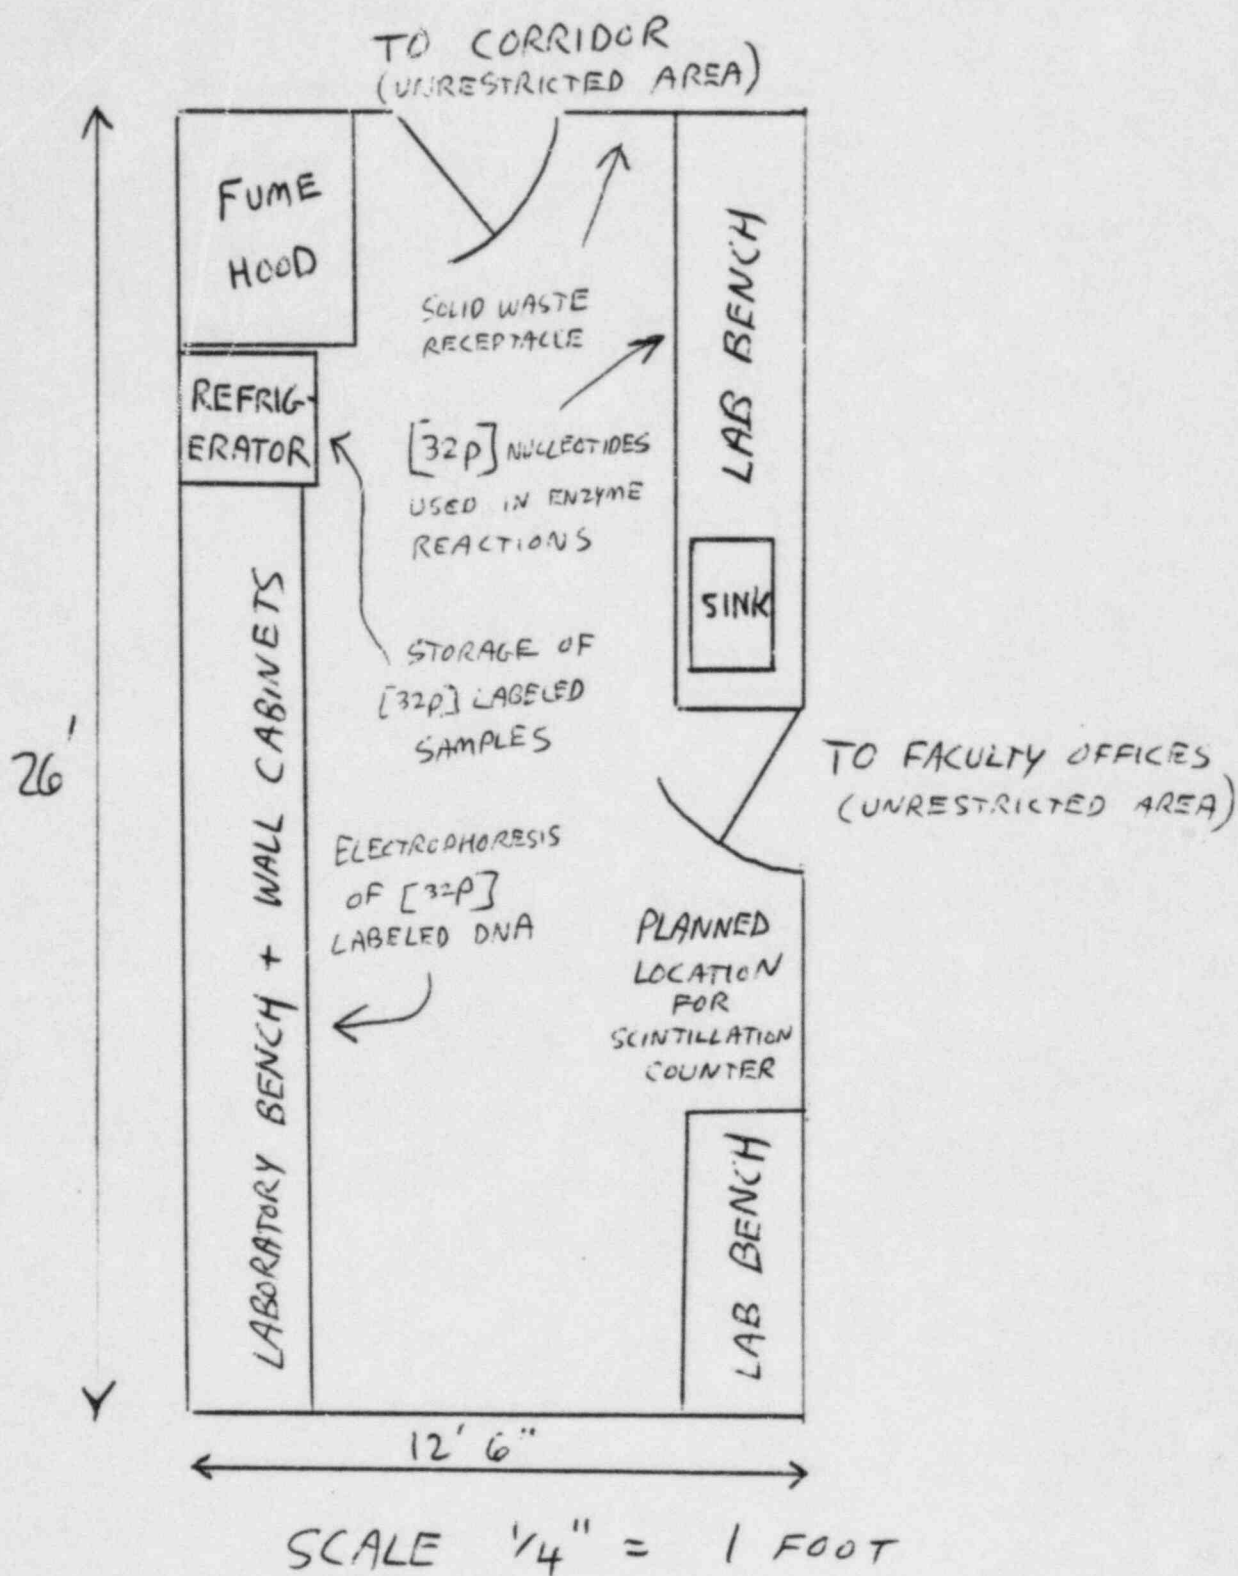 TO CORRIDOR
(UNRESTRICTED AREA)
FUME
HOOD
SOLID WASTE
RECEPTACLE
LAB BENCH
REFRIG-
ERATOR
[32P] NUCLEOTIDES
USED IN ENZYME
REACTIONS
SINK
STORAGE OF
[32P] LABELED
SAMPLES
26'
LABORATORY BENCH + WALL CABINETS
TO FACULTY OFFICES
(UNRESTRICTED AREA)
ELECTROPHORESIS
OF [32P]
LABELED DNA
PLANNED
LOCATION
FOR
SCINTILLATION
COUNTER
LAB BENCH
12' 6"
SCALE 1/4" = 1 FOOT